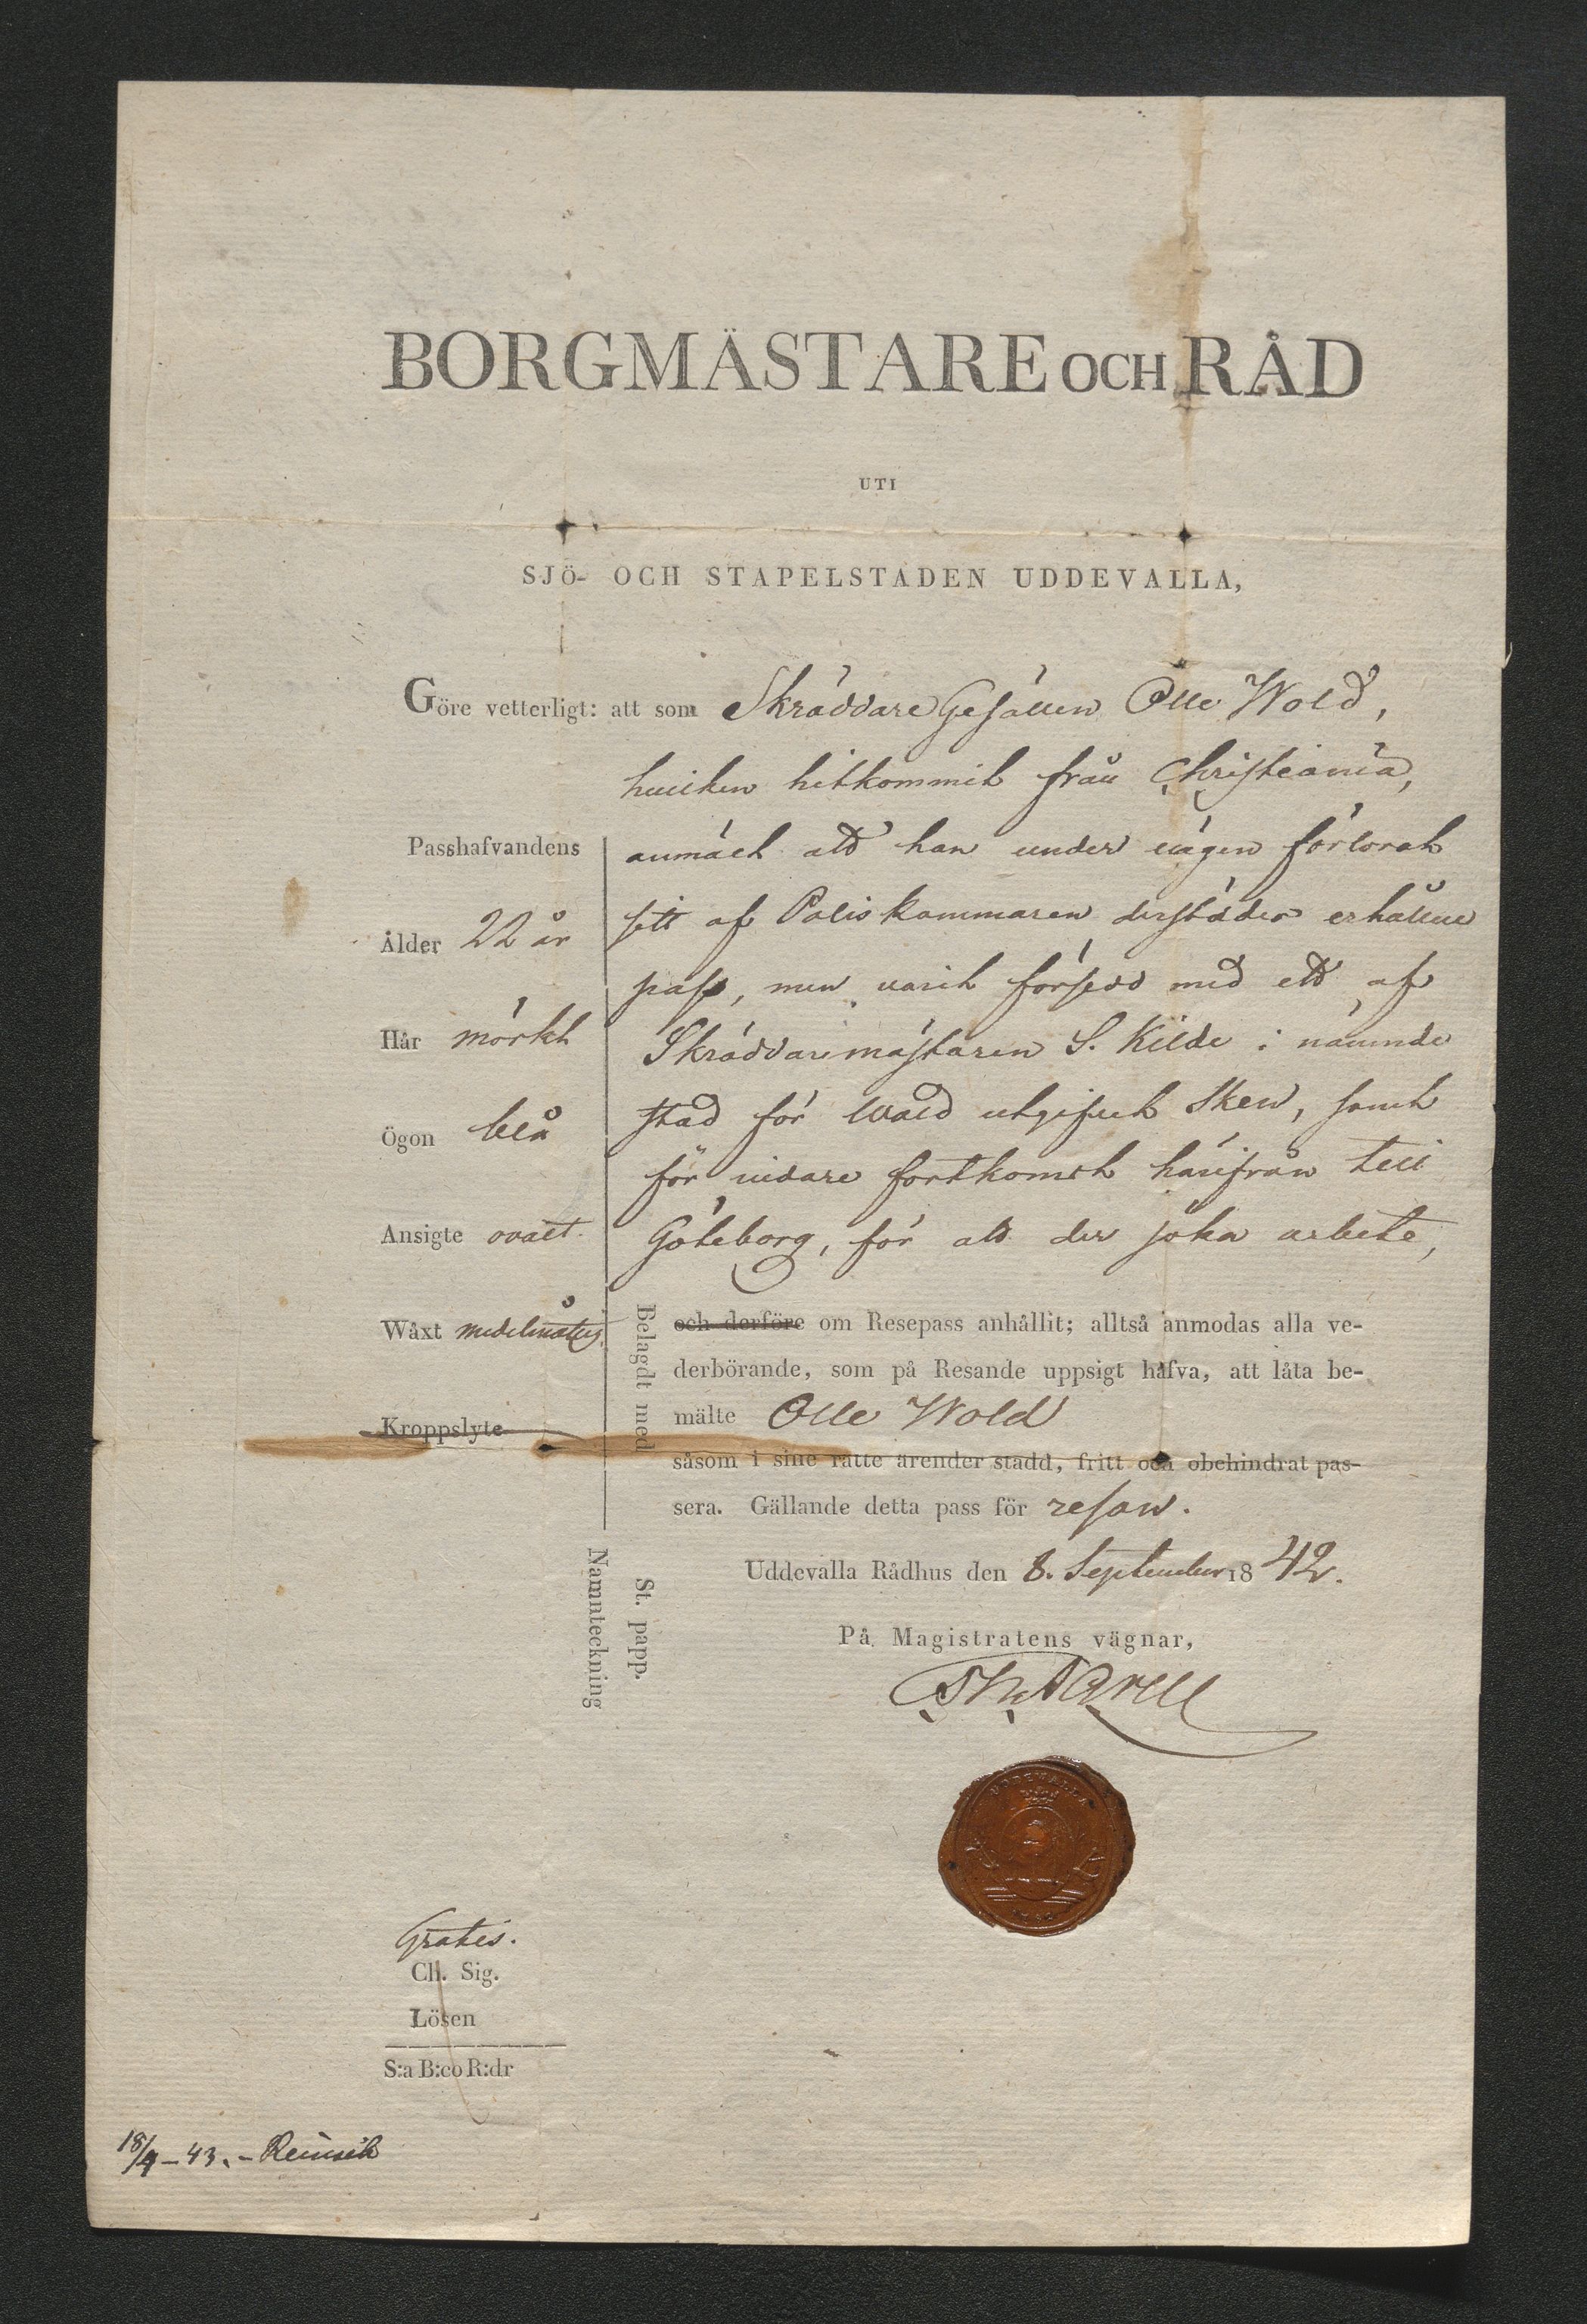 BORGMÄSTARE OCH RÅD
UTI
SJÖ- OCH STAPELSTADEN UDDEVALLA,
Göre vetterligt: att som Skräddare Gesällen Olle Wold,
hvilken hitkommit från Christiania,
anmält att han under vägen förlorat
sitt af Poliskammaren derstädes erhållne
pass, men varit försedd med ett af
Skräddaremästaren S. Kilde i nämnde
stad för Wold utgifvet Sken, samt
för vidare fortkomst härifrån till
Göteborg, för att der söka arbete,
Passhafvandens
Ålder 22 år
Hår mörkt
Ögon blå
Ansigte ovalt.
Wäxt medelmåttig
Kroppslyte
och derföre om Resepass anhållit; alltså anmodas alla ve-
derbörande, som på Resande uppsigt hafva, att låta be-
mälte Olle Wold
såsom i sine rätte ärender stadd, fritt och obehindrat pas-
sera. Gällande detta pass för resan.
Belagdt med St. papp.
Namnteckning
Uddevalla Rådhus den 8. September 1842.
På Magistratens vägnar,
UDDEVALLA
Gratis.
Ch. Sig.
Lösen
S:a B:co R:dr
18/4-43.-